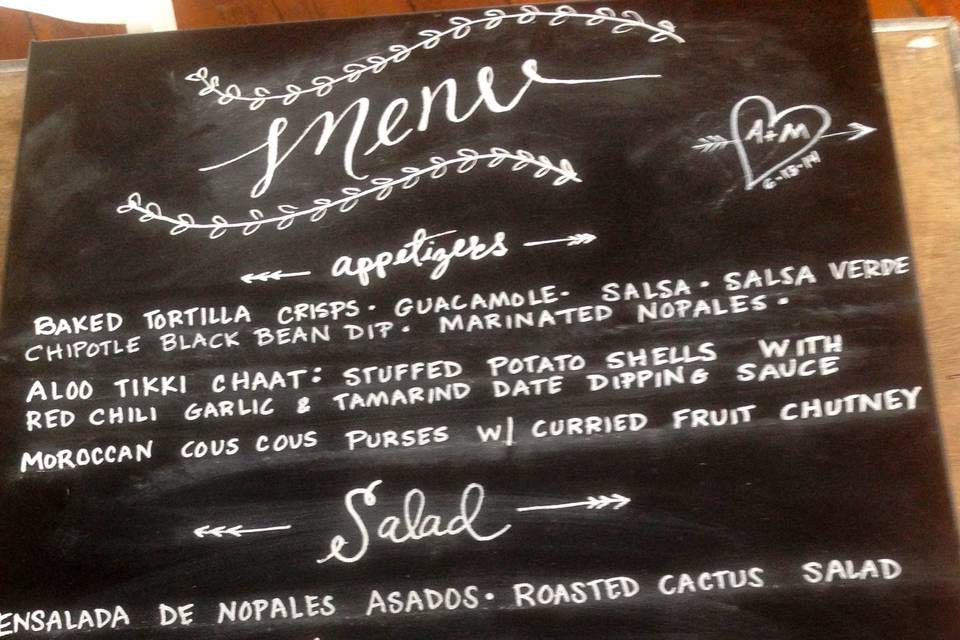 Menu
A+M
6-13-14
appetizers
BAKED TORTILLA CRISPS · GUACAMOLE · SALSA · SALSA VERDE
CHIPOTLE BLACK BEAN DIP · MARINATED NOPALES ·
ALOO TIKKI CHAAT: STUFFED POTATO SHELLS WITH
RED CHILI GARLIC & TAMARIND DATE DIPPING SAUCE
MOROCCAN COUS COUS PURSES W/ CURRIED FRUIT CHUTNEY
Salad
ENSALADA DE NOPALES ASADOS · ROASTED CACTUS SALAD